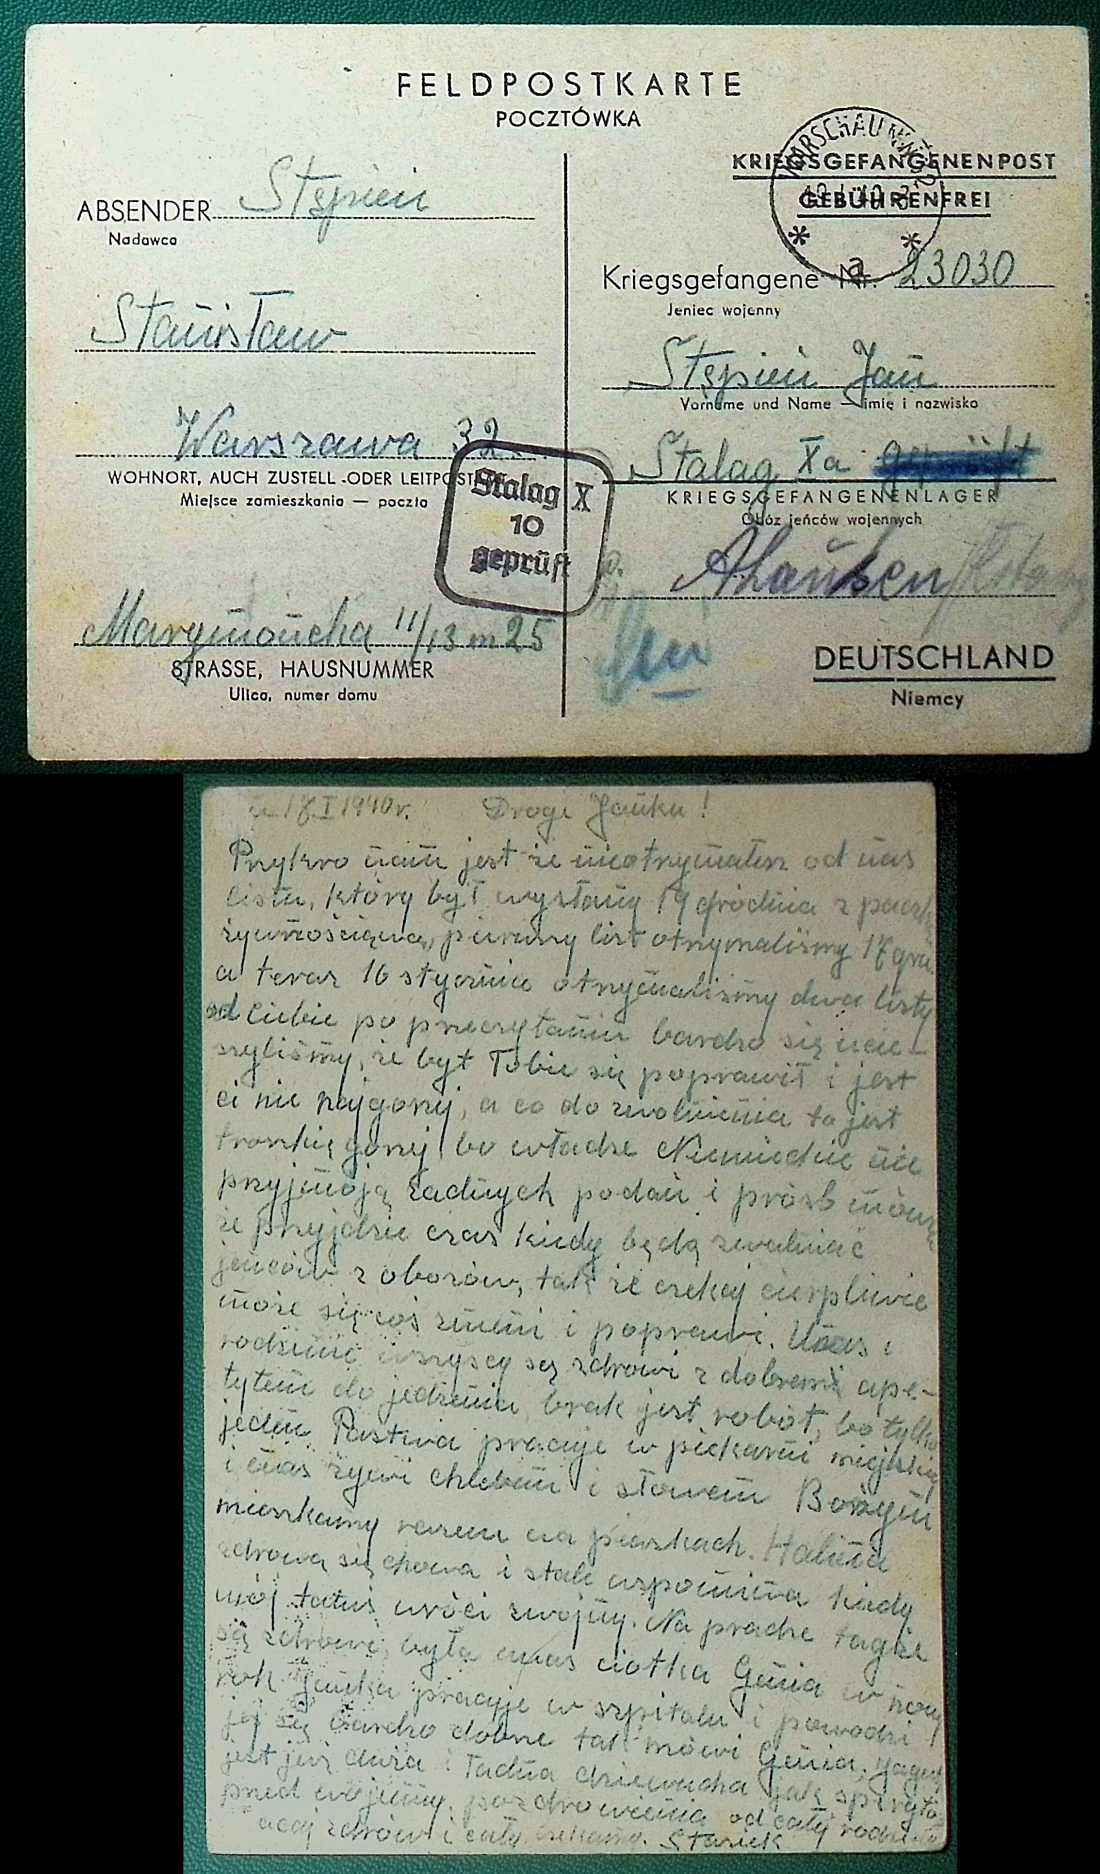 FELDPOSTKARTE
POCZTÓWKA
ABSENDER Stępień
Nadawca
Stanisław
Warszawa 32
WOHNORT, AUCH ZUSTELL-ODER LEITPOST
Miejsce zamieszkania — poczta
Marymoncka 11/13 m 25
STRASSE, HAUSNUMMER
Ulica, numer domu
Stalag X
10
geprüft
WARSCHAU
KRIEGSGEFANGENENPOST
GEBÜHRENFREI
Kriegsgefangene Nr. 23030
Jeniec wojenny
Stępień Jan
Vorname und Name — imię i nazwisko
Stalag Xa
KRIEGSGEFANGENENLAGER
Obóz jeńców wojennych
DEUTSCHLAND
Niemcy
18 I 1940 r. Drogi Janku!
Przykro nam jest że nieotrzymałeś od nas
listu, który był wysłany 19 grudnia z
żywnościową, pierwszy list otrzymaliśmy 17
a teraz 16 stycznia otrzymaliśmy dwa listy
od Ciebie po przeczytaniu bardzo się ucie-
szyliśmy, że byt Tobie się poprawił i jest
ci nie najgorzej, a co do zwolnienia to jest
troszkię gorzej bo władze Niemieckie nie
przyjmoją żadnych podań i prośb
że przyjdzie czas kiedy będą zwalniać
jeńców z obozów, tak że czekaj cierpliwie
może się coś zmieni i poprawi. Unas i
rodzinie wszyscy są zdrowi z dobrem ape-
tytem do jedzenia, brak jest robót, bo tylko
jeden pracuje w piekarni
i nas żywi chlebem i słowem Bożym
mieszkamy razem na piaskach. Halina
zdrowa się chowa i stale wspomina kiedy
mój tatuś wróci zwojny. Na pradze tagże
są zdrowi, była unas ciotka Genia w nowy
rok Janka pracuje w szpitalu i powodzi
jej się bardzo dobrze tak mówi Genia,
jest już duża i ładna dziewucha jak
przed wojną, pozdrowienia od cały
zdrów i cały czekamy. Stasiek